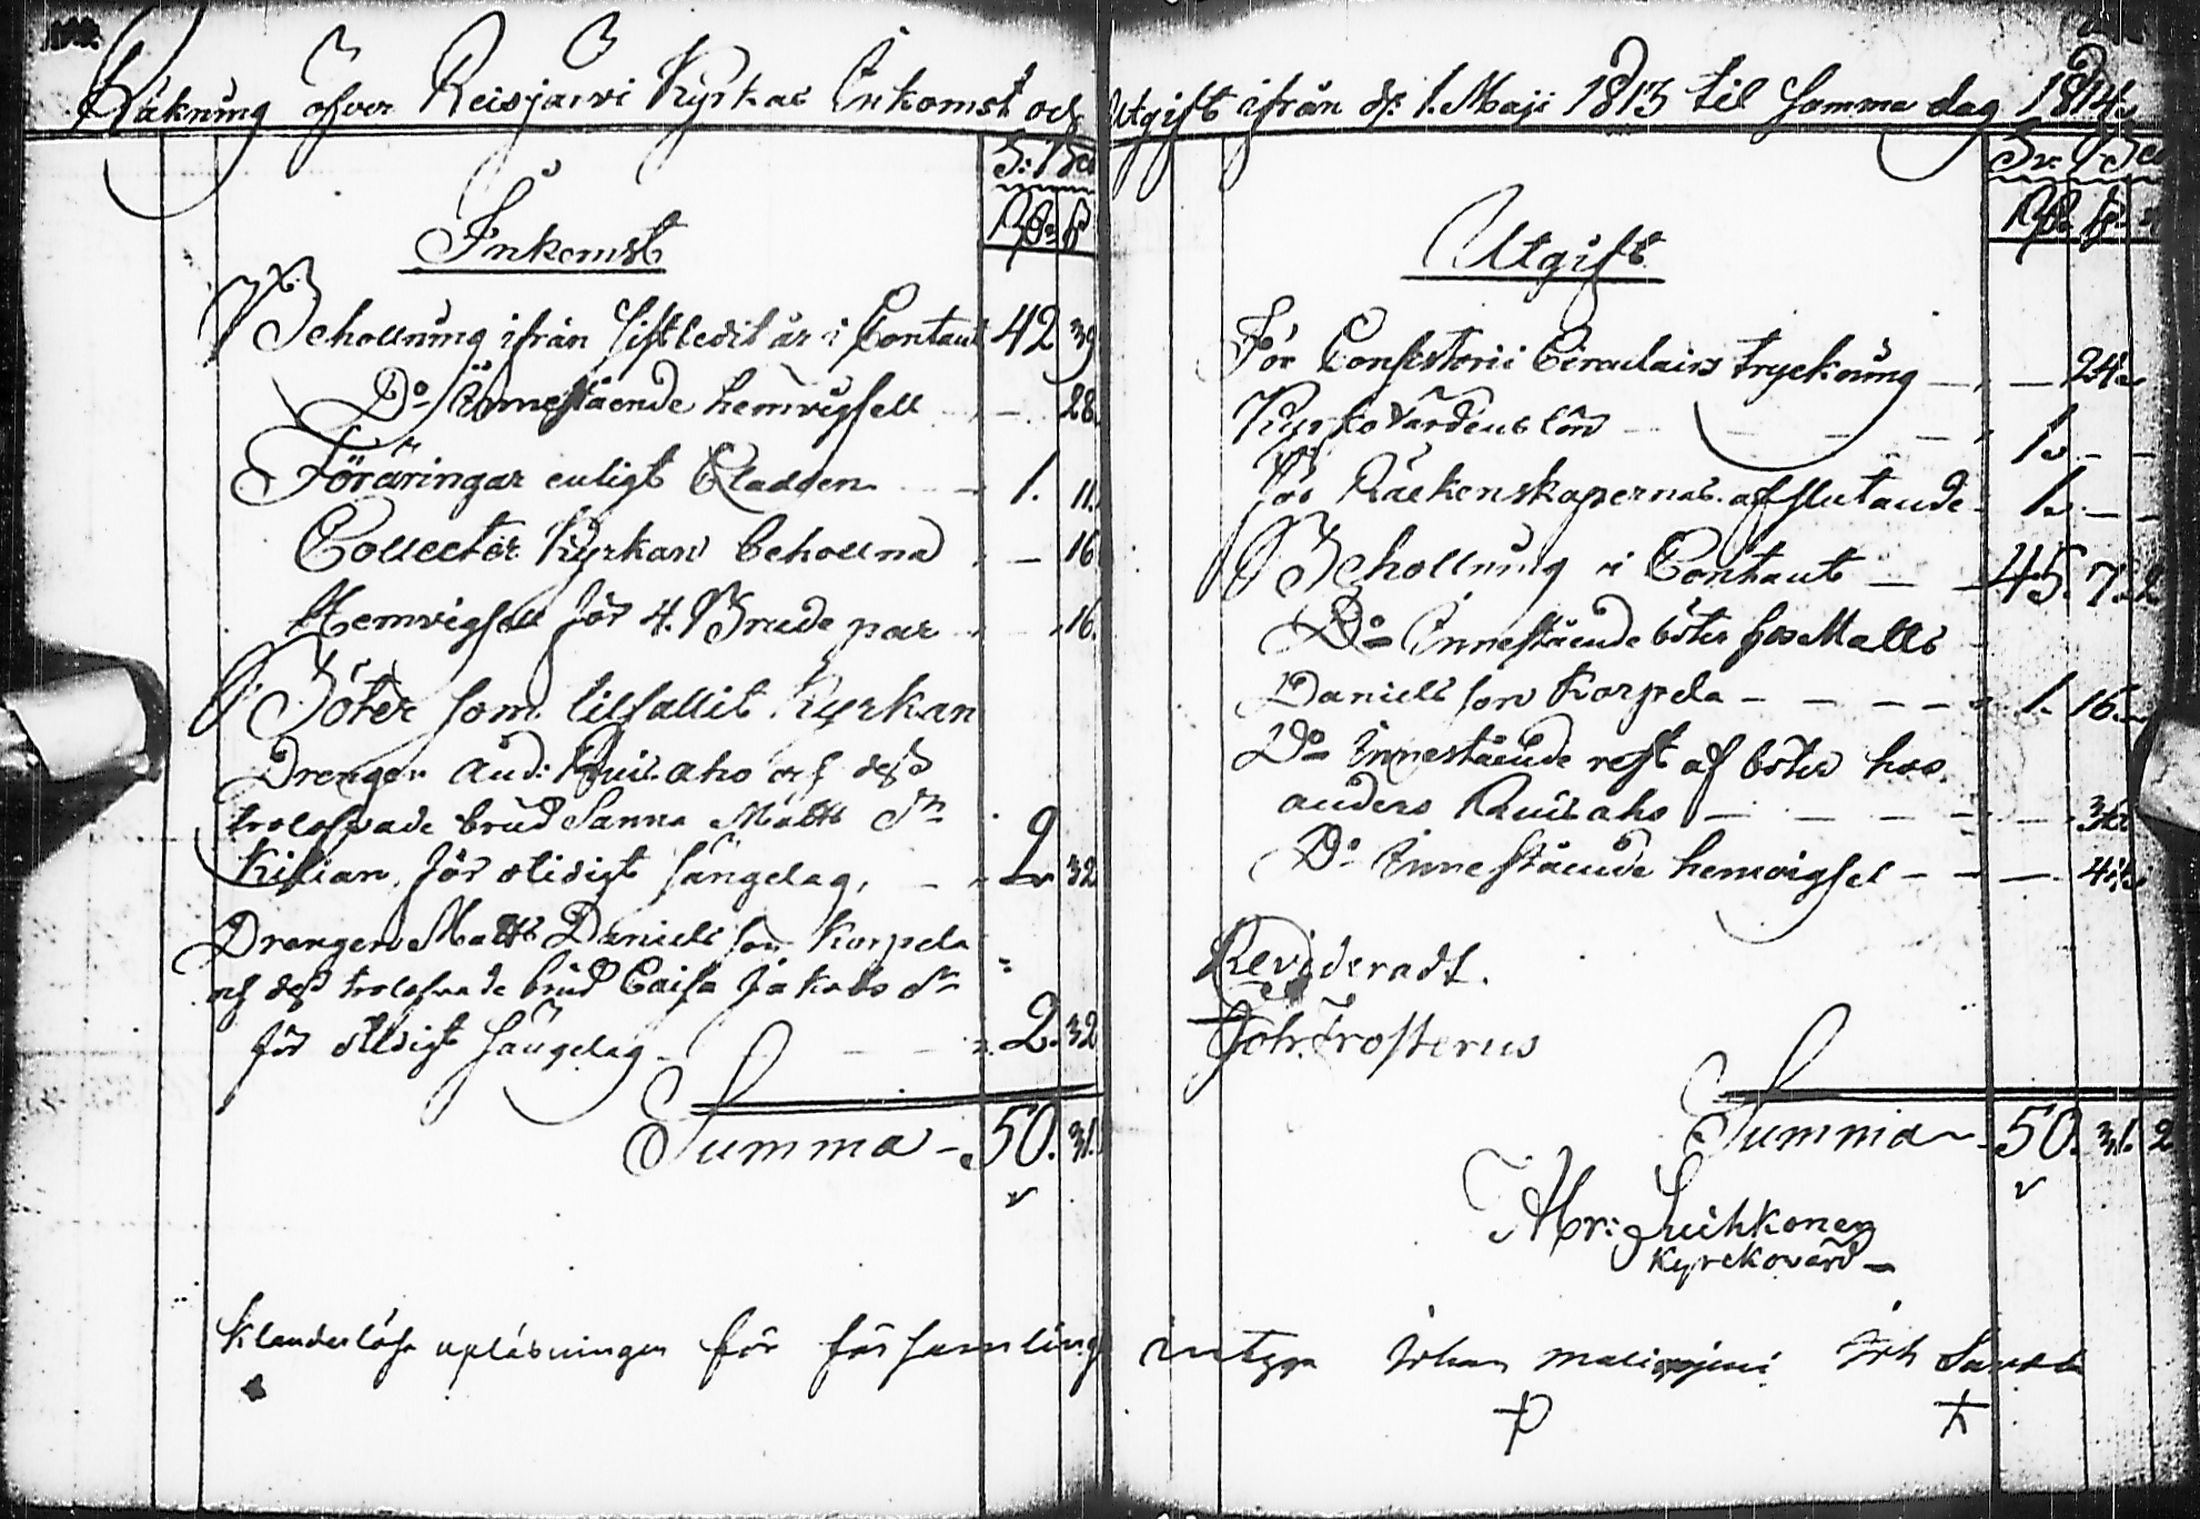 Räkning öfver Reisjärvi Kyrkas Inkomst och Utgift ifrån d: 1. Maji 1813 til samma dag 1814.
Inkomst
Rd: s
Behollning ifrån sistledit år i Contant 42 39
Do Innestående hemvigsell - 28.
Föräringar enligt Kladden 1. 11.
Collecter Kyrkan behollna - 16
Hemvigsell för 4. Brude par 16.
Böter som tilfallit Kyrkan
Drengen And: Ruisaho och dess
trolofvade brud Sanna Matts dr
Kilian, för otidigt sängelag, 2 32
Drengen Matts Daniels son Korpela
och dess trolofvade brud Caisa Jakobs dr
för otidigt sängelag 2. 32
Summa - 50. 31.
Utgift
Rd: s
För Consistorii Circulairs tryckning - 24.
Kyrkovärdens lön 1. - -
För Räckenskapernas afslutande 1. - -
Behollning i Contant 45. 7. 2
Do Innestående böter hos Matts
Daniels son Korpela 1. 16.
Do Innestående rest af böter hos
anders Ruisaho - 32
Do Innestående hemvigsel - 44.
Revideradt.
Joh. Frosterus
Summa 50. 31. 2
Abr: Suihkonen
Kyrckovärd
Klanderlösa upläsningen för församling intyga Johan Joh